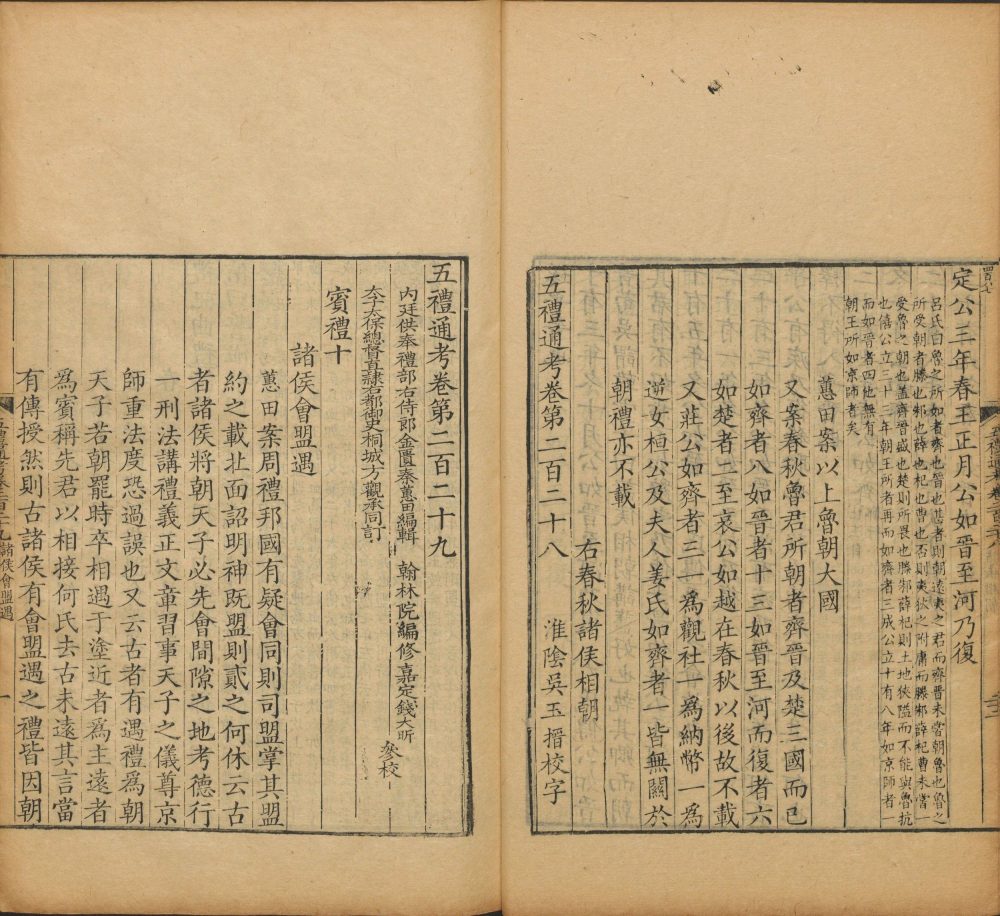 定公三年春王正月公如晉至河乃復
呂氏曰魯之所如者齊也晉也甚者則朝遠夷之君而齊晉未嘗朝魯也魯之
所受朝者滕也邾也薛也杞也曹也否則夷狄之附庸而滕邾薛杞曹未嘗一
受魯之朝也蓋齊晉盛也楚則所畏也滕邾薛杞則土地狹隘而不能與魯抗
也僖公立三十三年朝王所者再而如齊者三成公立十有八年如京師者一
而如晉者四他無有
朝王所如京師者矣
蕙田案以上魯朝大國
又案春秋魯君所朝者齊晉及楚三國而已
如齊者八如晉者十三如晉至河而復者六
如楚者二至哀公如越在春秋以後故不載
又莊公如齊者三一爲觀社一爲納幣一爲
逆女桓公及夫人姜氏如齊者一皆無關於
朝禮亦不載
右春秋諸侯相朝
五禮通考卷第二百二十八 淮陰吳玉搢校字
五禮通考卷第二百二十九
內廷供奉禮部右侍郎金匱秦蕙田編輯 翰林院編修嘉定錢大昕
太子太保總督直隸右都御史桐城方觀承同訂 參校
賓禮十
諸侯會盟遇
蕙田案周禮邦國有疑會同則司盟掌其盟
約之載北面詔明神既盟則貳之何休云古
者諸侯將朝天子必先會閒隙之地考德行
一刑法講禮義正文章習事天子之儀尊京
師重法度恐過誤也又云古者有遇禮爲朝
天子若朝罷時卒相遇于塗近者爲主遠者
爲賓稱先君以相接何氏去古未遠其言當
有傳授然則古諸侯有會盟遇之禮皆因朝
諸侯會盟遇
一